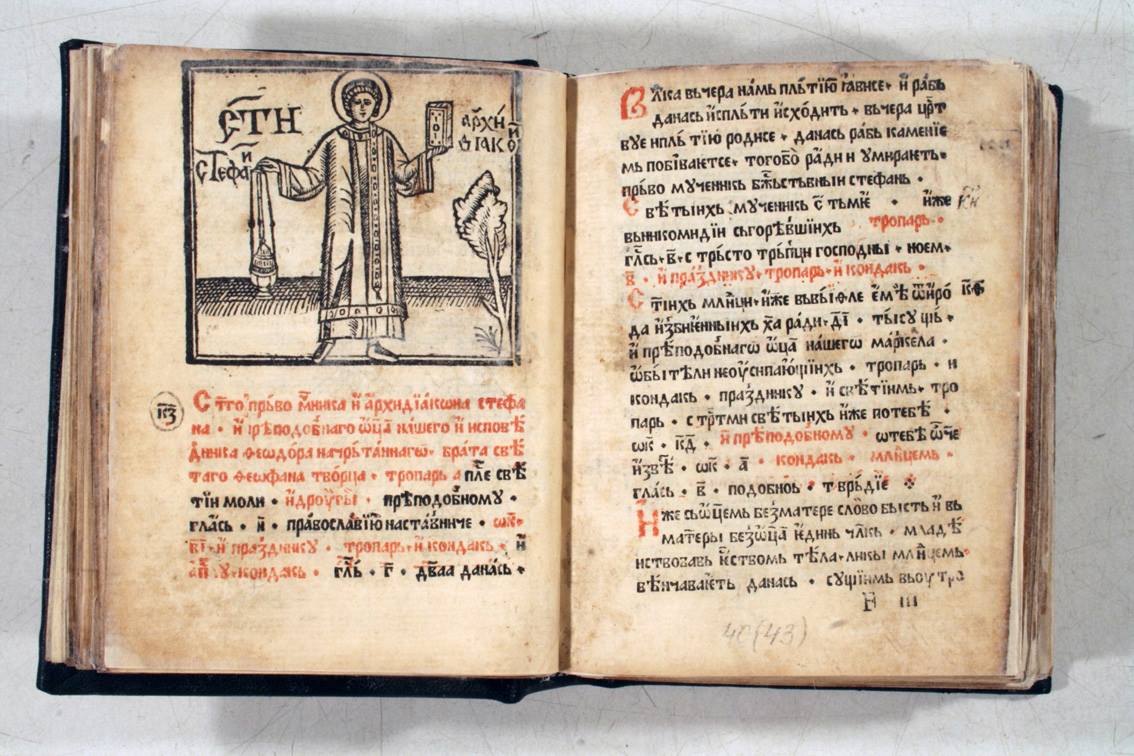 СТ҃Н
СТЕФА
и
АРХН
ДІАКО
К҃З
Ст҃го прьво м҃ника й архидїакѡна стефа
на · й прѣподобнаго ѡц҃а нашего й исповѣ
дника ѳеодѡра начрьтаннагѡ· брата свѣ
таго ѳеѡфана творца · тропарь а҃ пл҃е свѣ
тїи моли · й дроугы · прѣподобному ·
глась · и҃ · православїю наставниче · ѡк҃·
в҃і· й празднику · тропарь· й кондакь · й
ап҃ у· кондакь · гл҃ь · г҃ · дв҃аа данась ·
Влⷣка вьчера намь пльтїю ꙗвисе· й рабь
данась ис пльти исходить · вьчера цр҃т
вуе ни пльтїю родисе · данась рабь каменїе
мь побїваѥтсе· того бо ради и умираѥть·
прьво мученикь бж҃ьствьныи стефань ·
Свѣтыихь мученикь с҃ тьмѥ · иже
вь никомидїи сьгорѣвшїихь тропарь·
К҃И
гл҃сь· в҃· с трьсто трьпци господны · кюем·
в҃ · й празднику· тропарь· й кондакь ·
Стїихь млⷣнци· иже вь виѳле ѥмѣ ѿ иро
К҃Ѳ
да избиѥнныихь х҃а ради· д҃і · тысущь ·
й прѣподобнагѡ ѡц҃а нашегѡ маркела ·
ѡбытѣли неоусипающїихь · тропарь · и
кондакь · празднику · й свѣтїимь· тро
парь · с трт҃ми свѣтыихь иже по тебѣ ·
ѡк҃ · к҃д · й прѣподобному · ѡ тебѣ ѿч҃е
извѣ · ѡк҃ · а҃ · кондакь · млⷣнцемь ·
глась · в҃ · подобноь · тврьдїе
Иже сь ѡц҃емь без матере слово бысть й вь
матеры без ѡц҃а ѥдинь чл҃кь · младѣ
нствовавь ѥствомь тѣла· лики млⷣнцемь·
вѣнчаваѥть данась · сущїимь вьоутро
40(43)